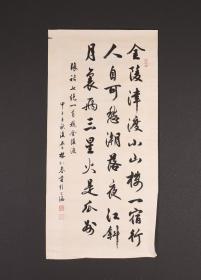 金陵津渡小山樓一宿行
人自可愁潮落夜江斜
月裏兩三星火是瓜洲
張祜七絕一首題金陵渡